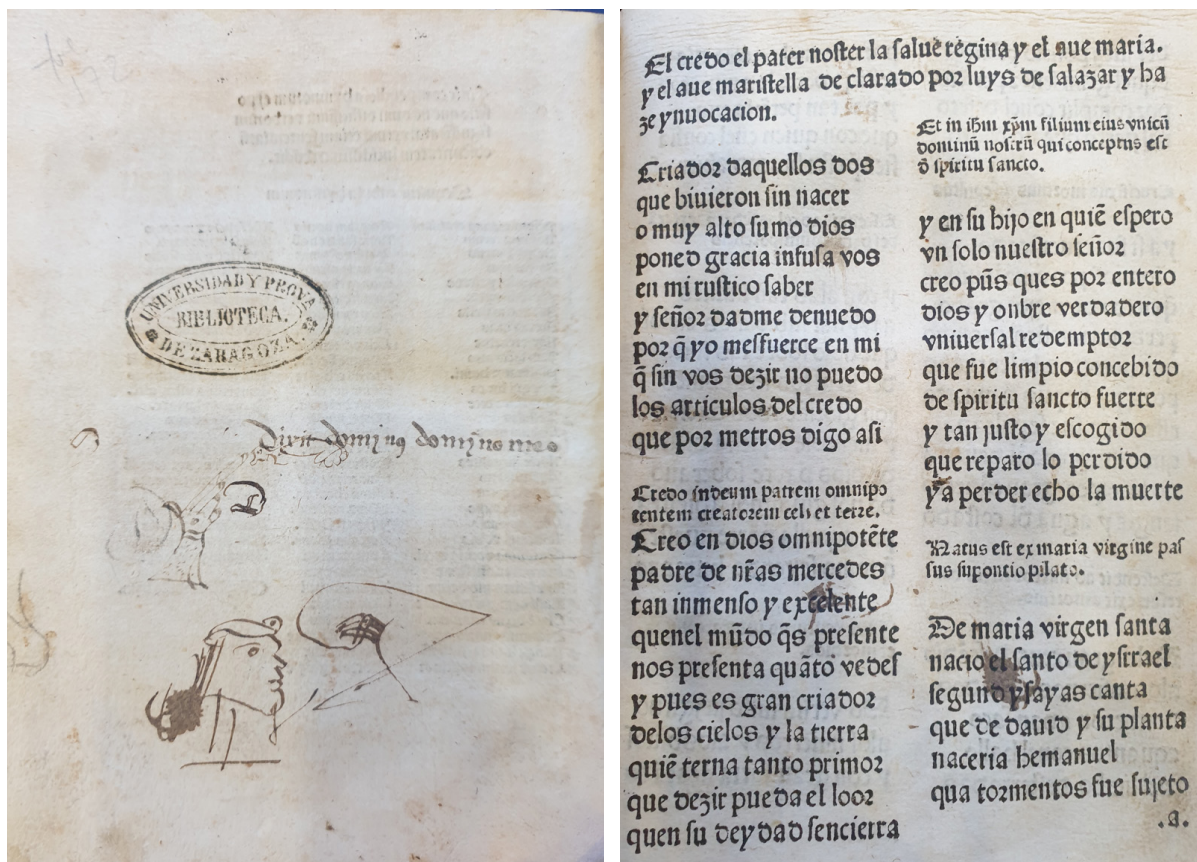 UNIVERSIDAD Y PROVA
BIBLIOTECA.
DE ZARAGOZA.
Dixit dominus domino meo
El credo el pater noster la salue regina y el aue maria.
y el aue maristella de clarado por luys de salazar y ha
ze ynuocacion.
Criador daquellos dos
que biuieron sin nacer
o muy alto sumo dios
poned gracia infusa vos
en mi rustico saber
y señor dadme denuedo
por q̃ yo mesfuerce en mi
q̃ sin vos dezir no puedo
los articulos del credo
que por metros digo asi
Credo indeum patrem omnipo
tentem creatorem celi et terre.
Creo en dios omnipotẽte
padre de nr̃as mercedes
tan inmenso y excelente
quenel mũdo q̃s presente
nos presenta quãto vedes
y pues es gran criador
delos cielos y la tierra
quiẽ terna tanto primor
que dezir pueda el loor
quen su deydad sencierra
Et in ihm̃ xp̃m filium eius vnicũ
dominũ nostrũ qui conceptus est
d̃ spiritu sancto.
y en su hijo en quiẽ espero
vn solo nuestro señor
creo pũs ques por entero
dios y onbre verdadero
vniuersal redemptor
que fue limpio concebido
de spiritu sancto fuerte
y tan justo y escogido
que reparo lo perdido
ya perder echo la muerte
Natus est ex maria virgine pas
sus su pontio pilato.
De maria virgen santa
nacio el santo de ysrrael
segund ysayas canta
que de dauid y su planta
naceria hemanuel
qua tormentos fue sujeto
.a.